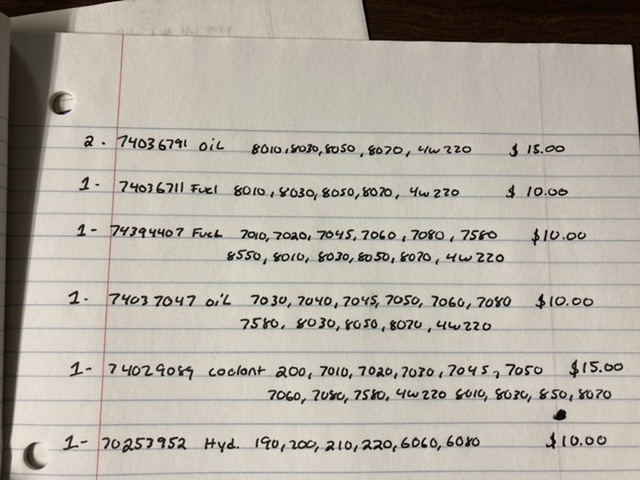 2. 74036791 oil 8010, 8030, 8050, 8070, 4W220 $15.00
1- 74036711 Fuel 8010, 8030, 8050, 8070, 4W220 $10.00
1- 74394407 Fuel 7010, 7020, 7045, 7060, 7080, 7580 $10.00
8550, 8010, 8030, 8050, 8070, 4W220
1. 74037047 oil 7030, 7040, 7045, 7050, 7060, 7080 $10.00
7580, 8030, 8050, 8070, 4W220
1- 74029089 coolant 200, 7010, 7020, 7030, 7045, 7050 $15.00
7060, 7080, 7580, 4W220 8010, 8030, 850, 8070
1- 70253952 Hyd. 190, 200, 210, 220, 6060, 6080 $10.00